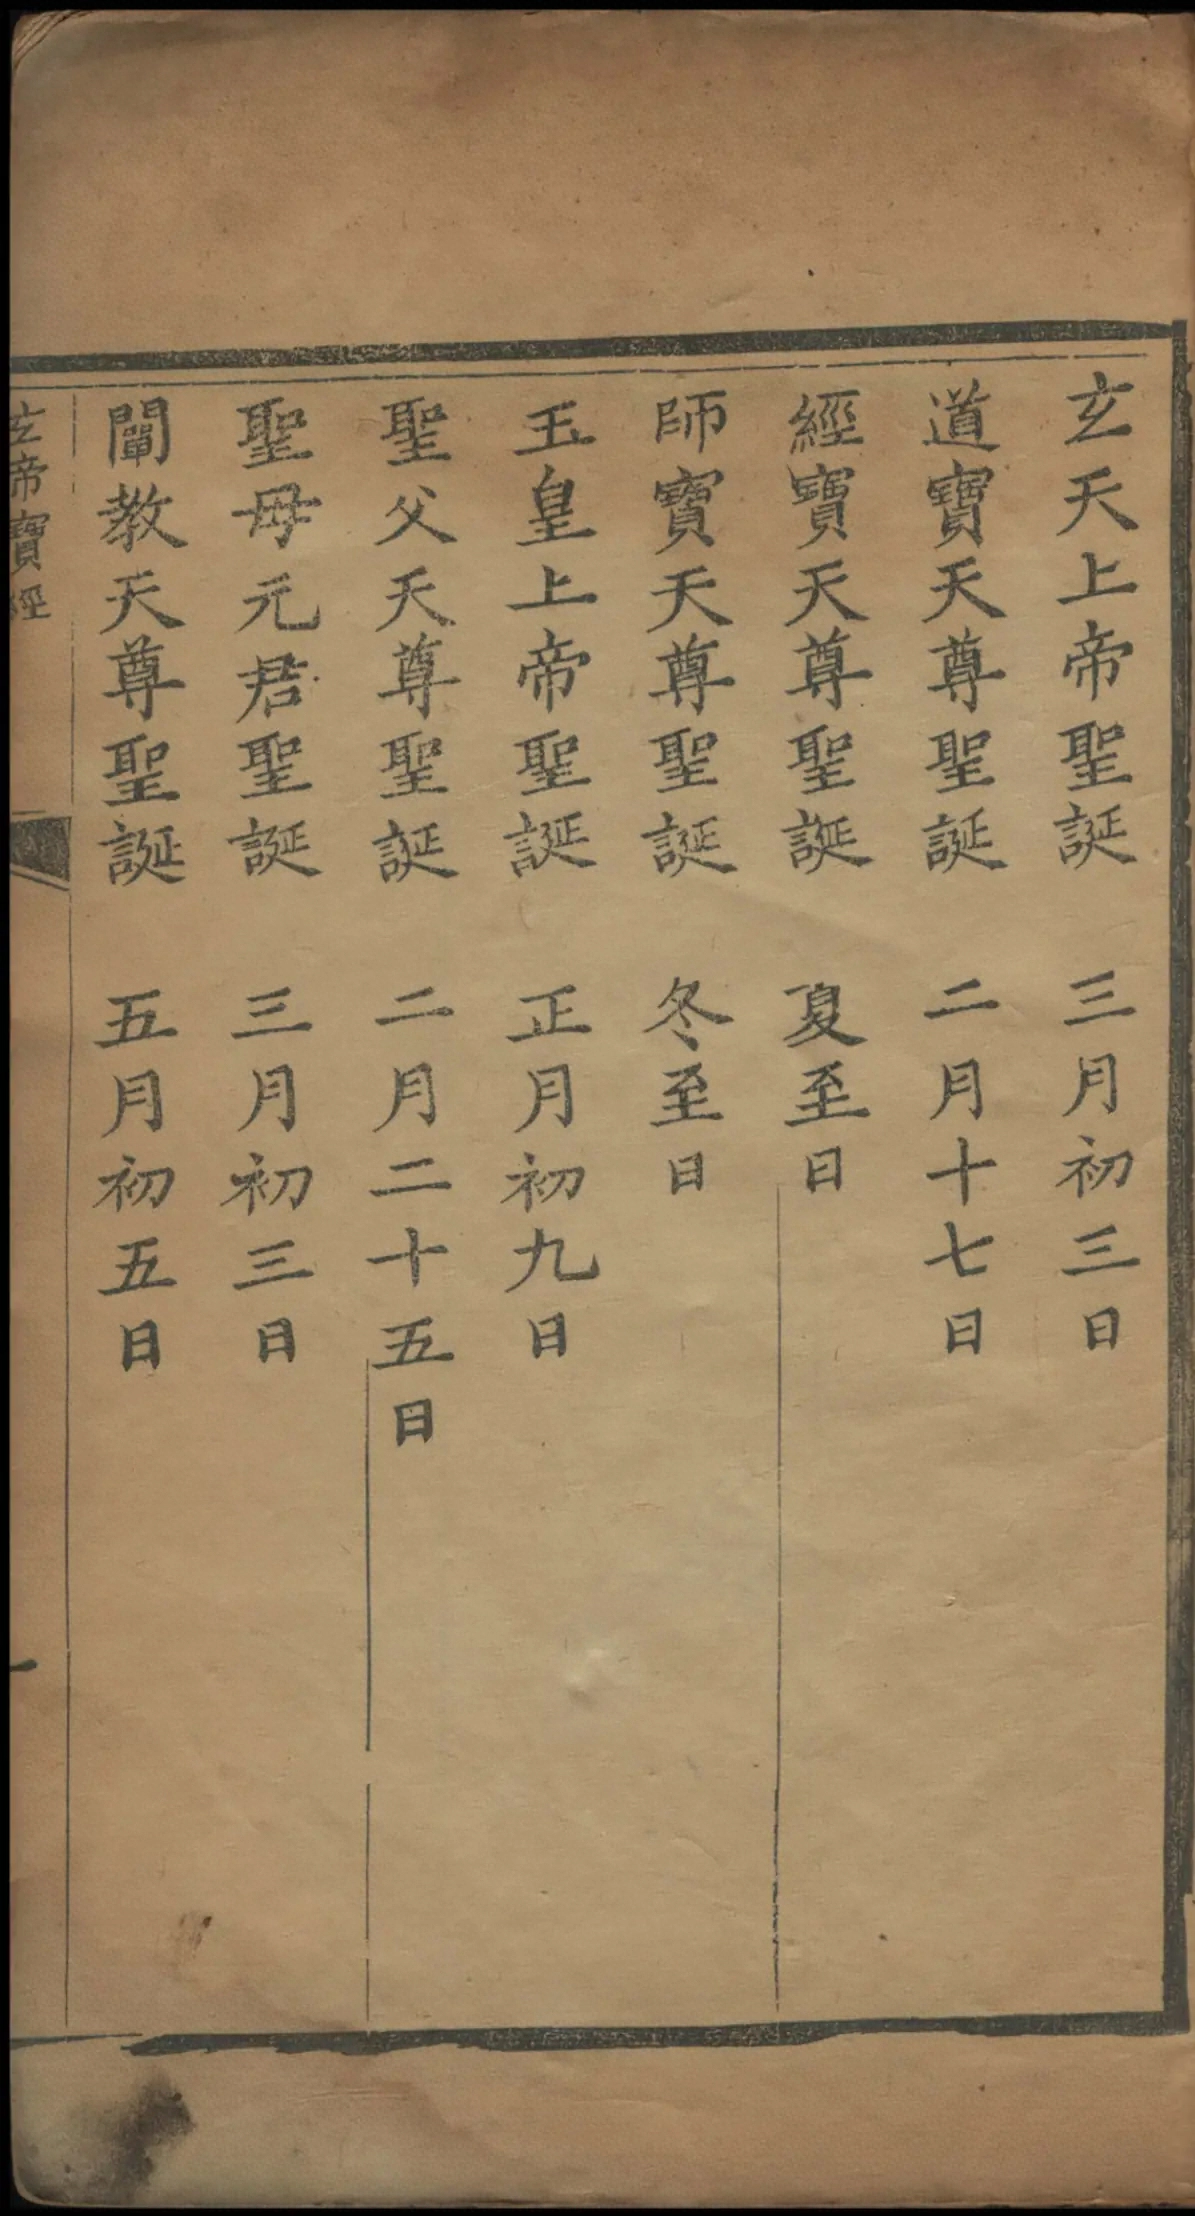 玄天上帝聖誕　三月初三日
道寶天尊聖誕　二月十七日
經寶天尊聖誕　夏至日
師寶天尊聖誕　冬至日
玉皇上帝聖誕　正月初九日
聖父天尊聖誕　二月二十五日
聖母元君聖誕　三月初三日
闡教天尊聖誕　五月初五日
玄帝寶經　一